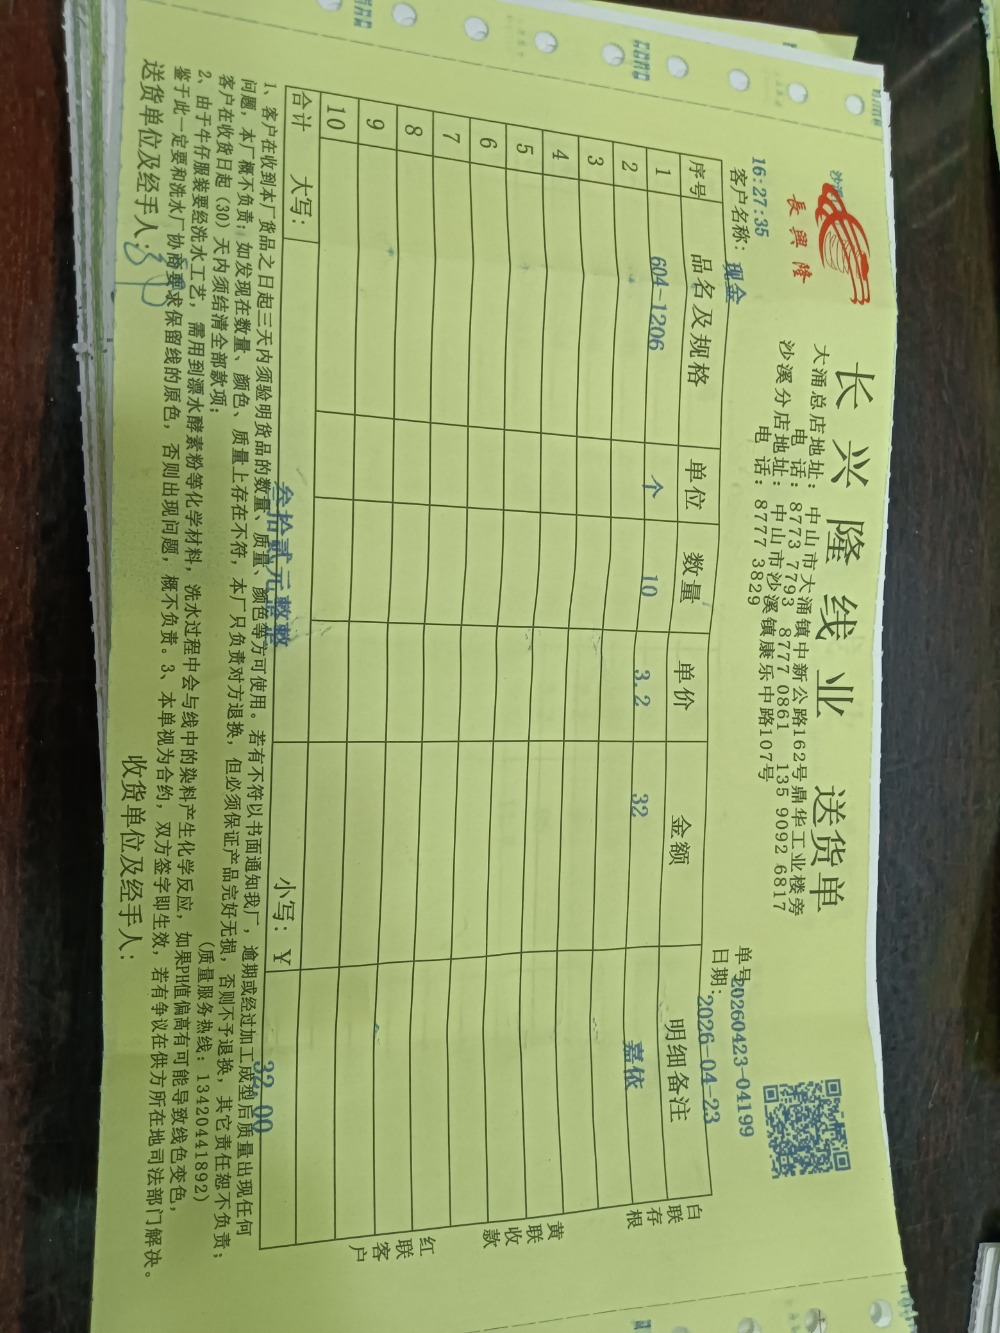 沙溪
長興隆
长兴隆线业 送货单
大涌总店地址：中山市大涌镇中新公路162号鼎华工业楼旁
电 话：8773 7793 8777 0861 135 9092 6817
沙溪分店地址：中山市沙溪镇康乐中路107号
电 话：8777 3829
16:27:35
单号 20260423-04199
客户名称：现金
日期：2026-04-23
序号 品名及规格 单位 数量 单价 金额 明细备注
1 604-1206 个 10 3.2 32 嘉依
2
3
4
5
6
7
8
9
10
合计 大写：叁拾贰元整 小写：¥ 32.00
白联存根
黄联收款
红联客户
1、客户在收到本厂货品之日起三天内须验明货品的数量、质量、颜色等方可使用。若有不符以书面通知我厂，逾期或经过加工成型后质量出现任何
问题，本厂概不负责；如发现在数量、颜色、质量上存在不符，本厂只负责对方退换，但必须保证产品完好无损，否则不予退换，其它责任恕不负责；
客户在收货日起（30）天内须结清全部款项；
（质量服务热线：13420441892）
2、由于牛仔服装要经洗水工艺，需用到漂水酵素粉等化学材料，洗水过程中会与线中的染料产生化学反应，如果PH值偏高有可能导致线色变色，
鉴于此一定要和洗水厂协商要求保留线的原色，否则出现问题，概不负责。3、本单视为合约，双方签字即生效，若有争议在供方所在地司法部门解决。
送货单位及经手人：
收货单位及经手人：